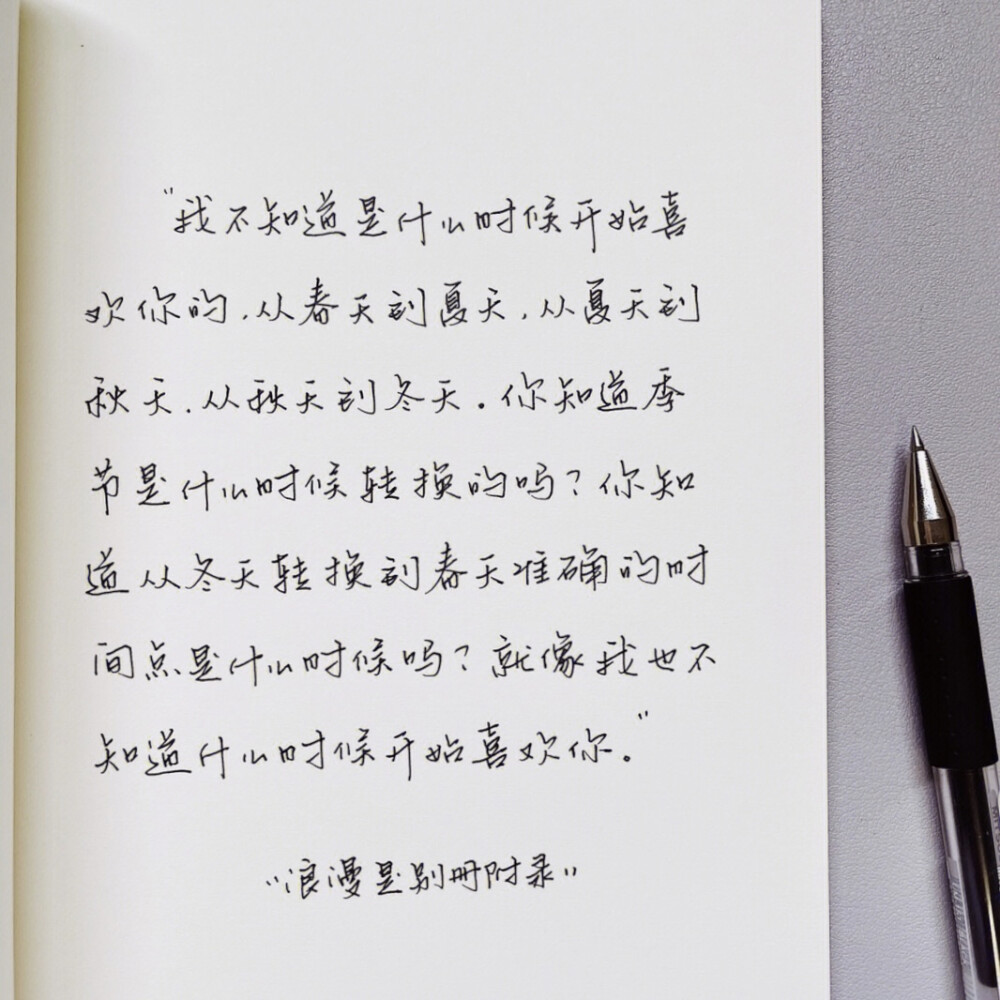 “我不知道是什么时候开始喜
欢你的,从春天到夏天,从夏天到
秋天,从秋天到冬天。你知道季
节是什么时候转换的吗?你知
道从冬天转换到春天准确的时
间点是什么时候吗?就像我也不
知道什么时候开始喜欢你。”
“浪漫是别册附录”